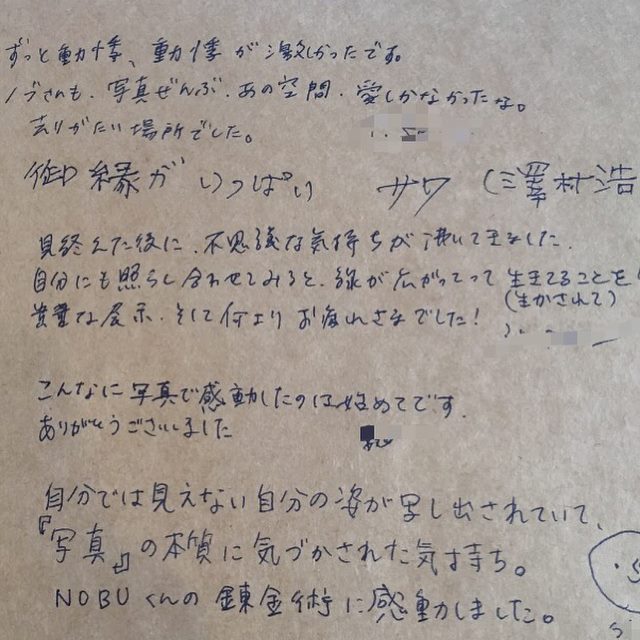 ずっと動悸、動悸が激しかったです。
ノブさんも、写真ぜんぶ、あの空間、愛しかなかったな。
ありがたい場所でした。
御縁がいっぱい サワ (澤村浩
見終えた後に、不思議な気持ちが沸いてきました。
自分にも照らし合わせてみると、線が広がってって 生きてることを
(生かされて)
貴重な展示、そして何よりお疲れさまでした!
こんなに写真で感動したのは始めてです。
ありがとうございました
自分では見えない自分の姿が写し出されていて、
『写真』の本質に気づかされた気持ち。
NOBUくんの錬金術に感動しました。